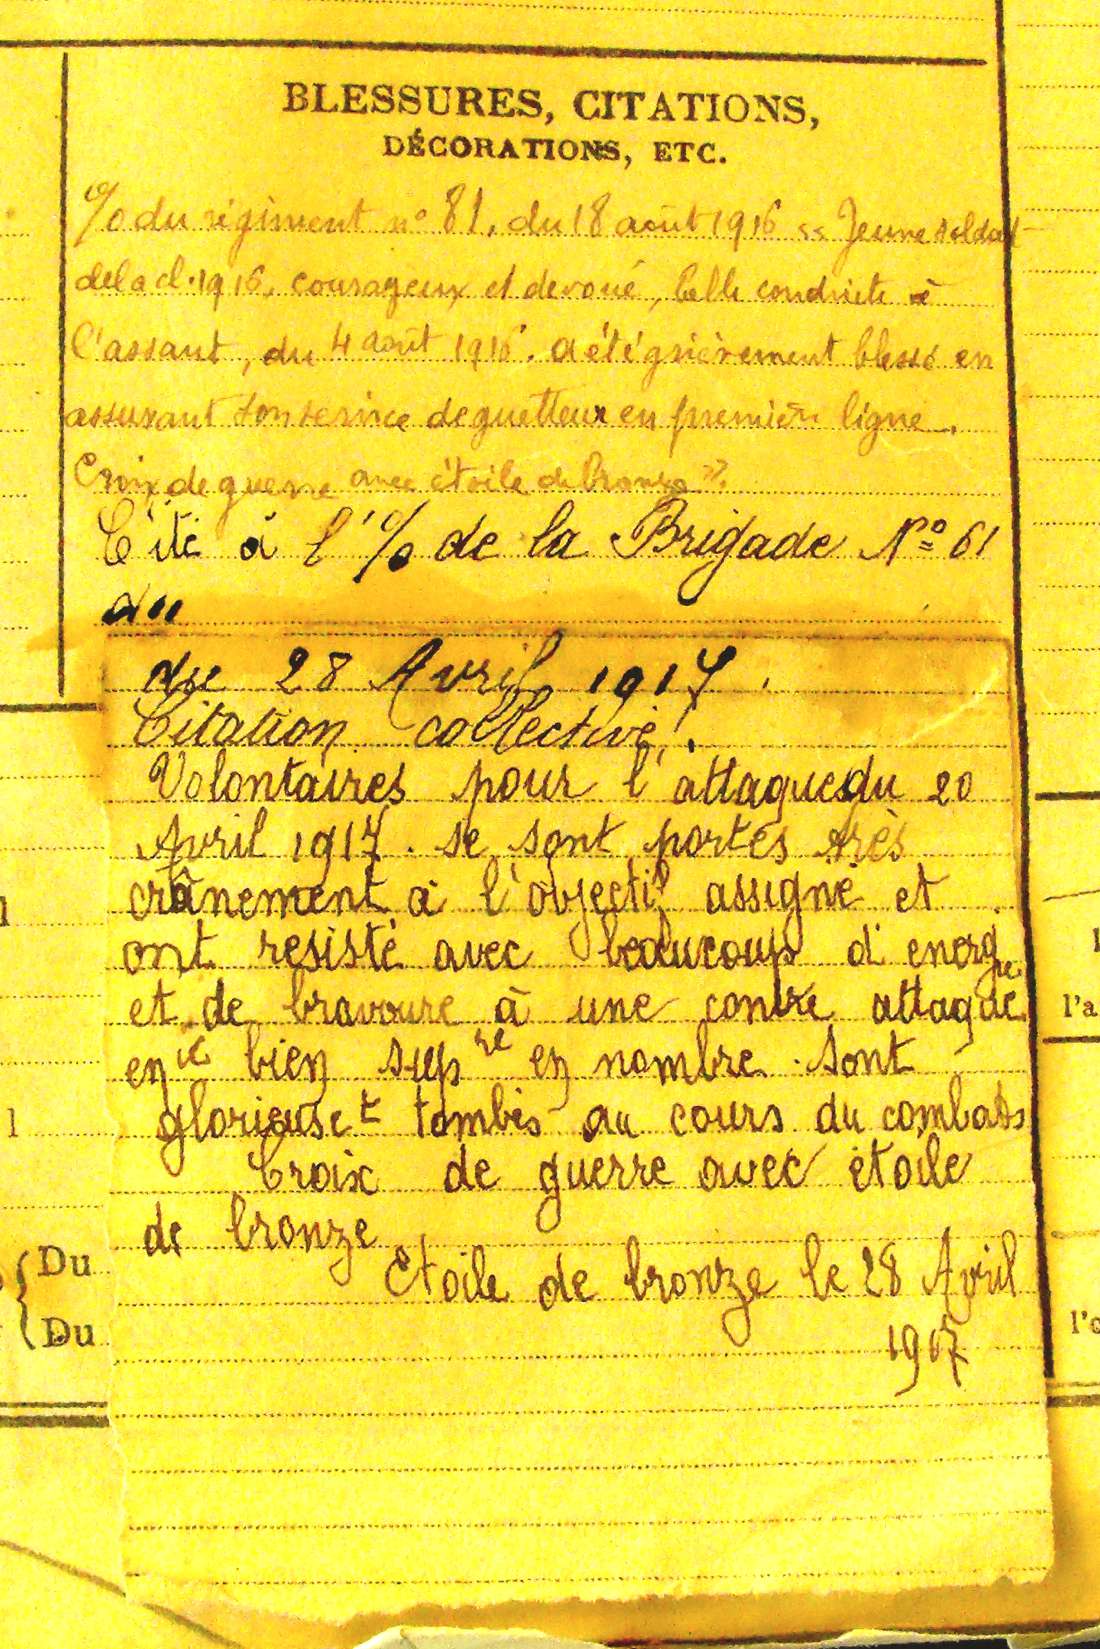 BLESSURES, CITATIONS,
DÉCORATIONS, ETC.
%o du régiment n° 81, du 18 août 1916 << Jeune soldat
de la cl. 1916, courageux et dévoué, belle conduite à
l'assaut, du 4 août 1916. a été grièvement blessé en
assurant son service de guetteur en première ligne.
Croix de guerre avec étoile de bronze >>.
Cité à l'%o de la Brigade N° 61
du
du 28 Avril 1917.
Citation collective.
Volontaires pour l'attaque du 20
Avril 1917. se sont portés très
crânement à l'objectif assigné et
ont resisté avec beaucoup d'energie
et de bravoure à une contre attaque
en ie bien sup re en nombre. Sont
glorieuset tombés au cours du combats
Croix de guerre avec étoile
de bronze
Etoile de bronze le 28 Avril
1917
l
l
Du
Du
l'a